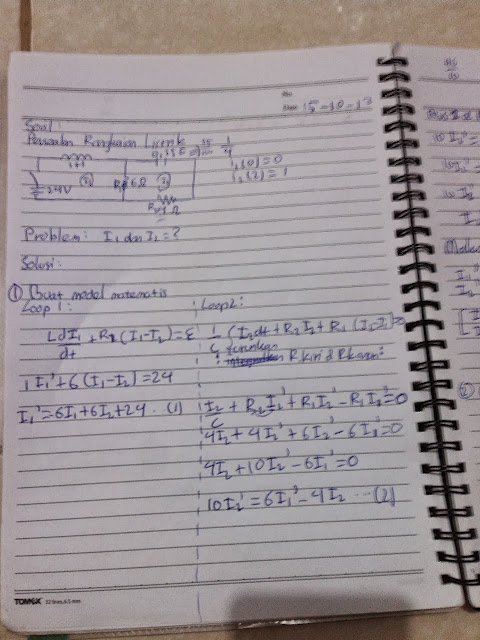 15-10-13
Soal:
Persoalan Rangkaian Listrik
0,25 F = 25/100 = 1/4
I1(0) = 0
I2(2) = 1
24V
R1 6Ω
Ω
Problem: I1 dan I2 = ?
Solusi:
① Buat model matematis
Loop 1:
L dI1/dt + R1 (I1-I2) = ε
1 I1' + 6(I1-I2) = 24
I1' = 6I1 + 6I2 + 24 ... (1)
Loop 2:
1/C ∫I2dt + R2I2 + R1(I2-I1) = 0
: turunkan R kiri & R kanan:
I2/C + R2I2' + R1I2' - R1I1' = 0
4I2 + 4I2' + 6I2' - 6I1' = 0
4I2 + 10I2' - 6I1' = 0
10I2' = 6I1' - 4I2 ... (2)